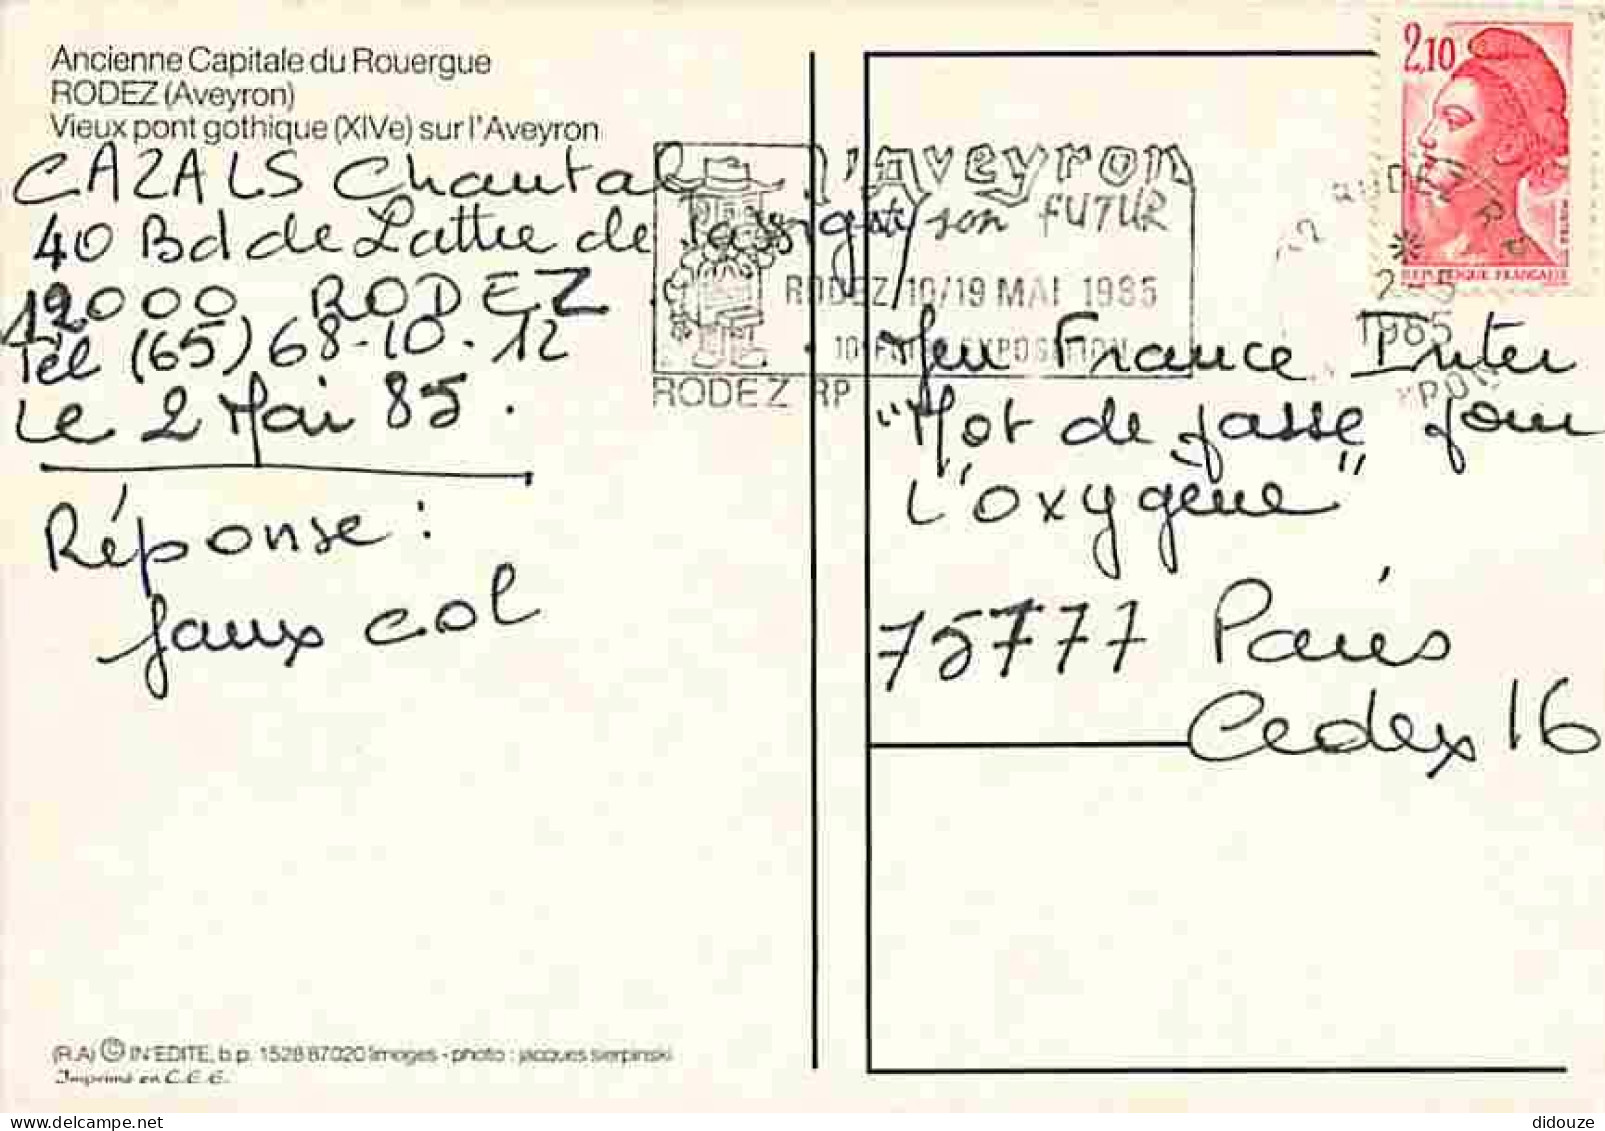 Ancienne Capitale du Rouergue
RODEZ (Aveyron)
Vieux pont gothique (XIVe) sur l'Aveyron
CAZALS Chantal
40 Bd de Lattre de Tassigny
12000 RODEZ
Tel (65) 68-10.12
Le 2 Mai 85.
Réponse :
faux col
l'Aveyron
son FUTUR
RODEZ 10/19 MAI 1985
EXPOSITION
RODEZ RP
2,10
REPUBLIQUE FRANÇAISE
1985
Jeu France Inter
"Mot de passe pour
L'oxygène"
75777 Paris
Cedex 16
(R.A) © IN'EDITE, b.p. 1528 87020 limoges - photo : jacques sierpinski
Imprimé en C.E.E.
didouze